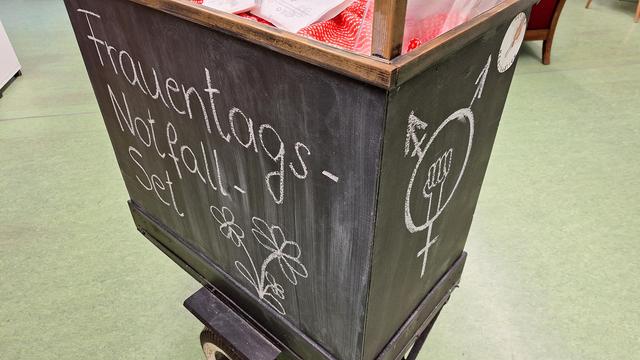 Frauentags-
Notfall-
Set